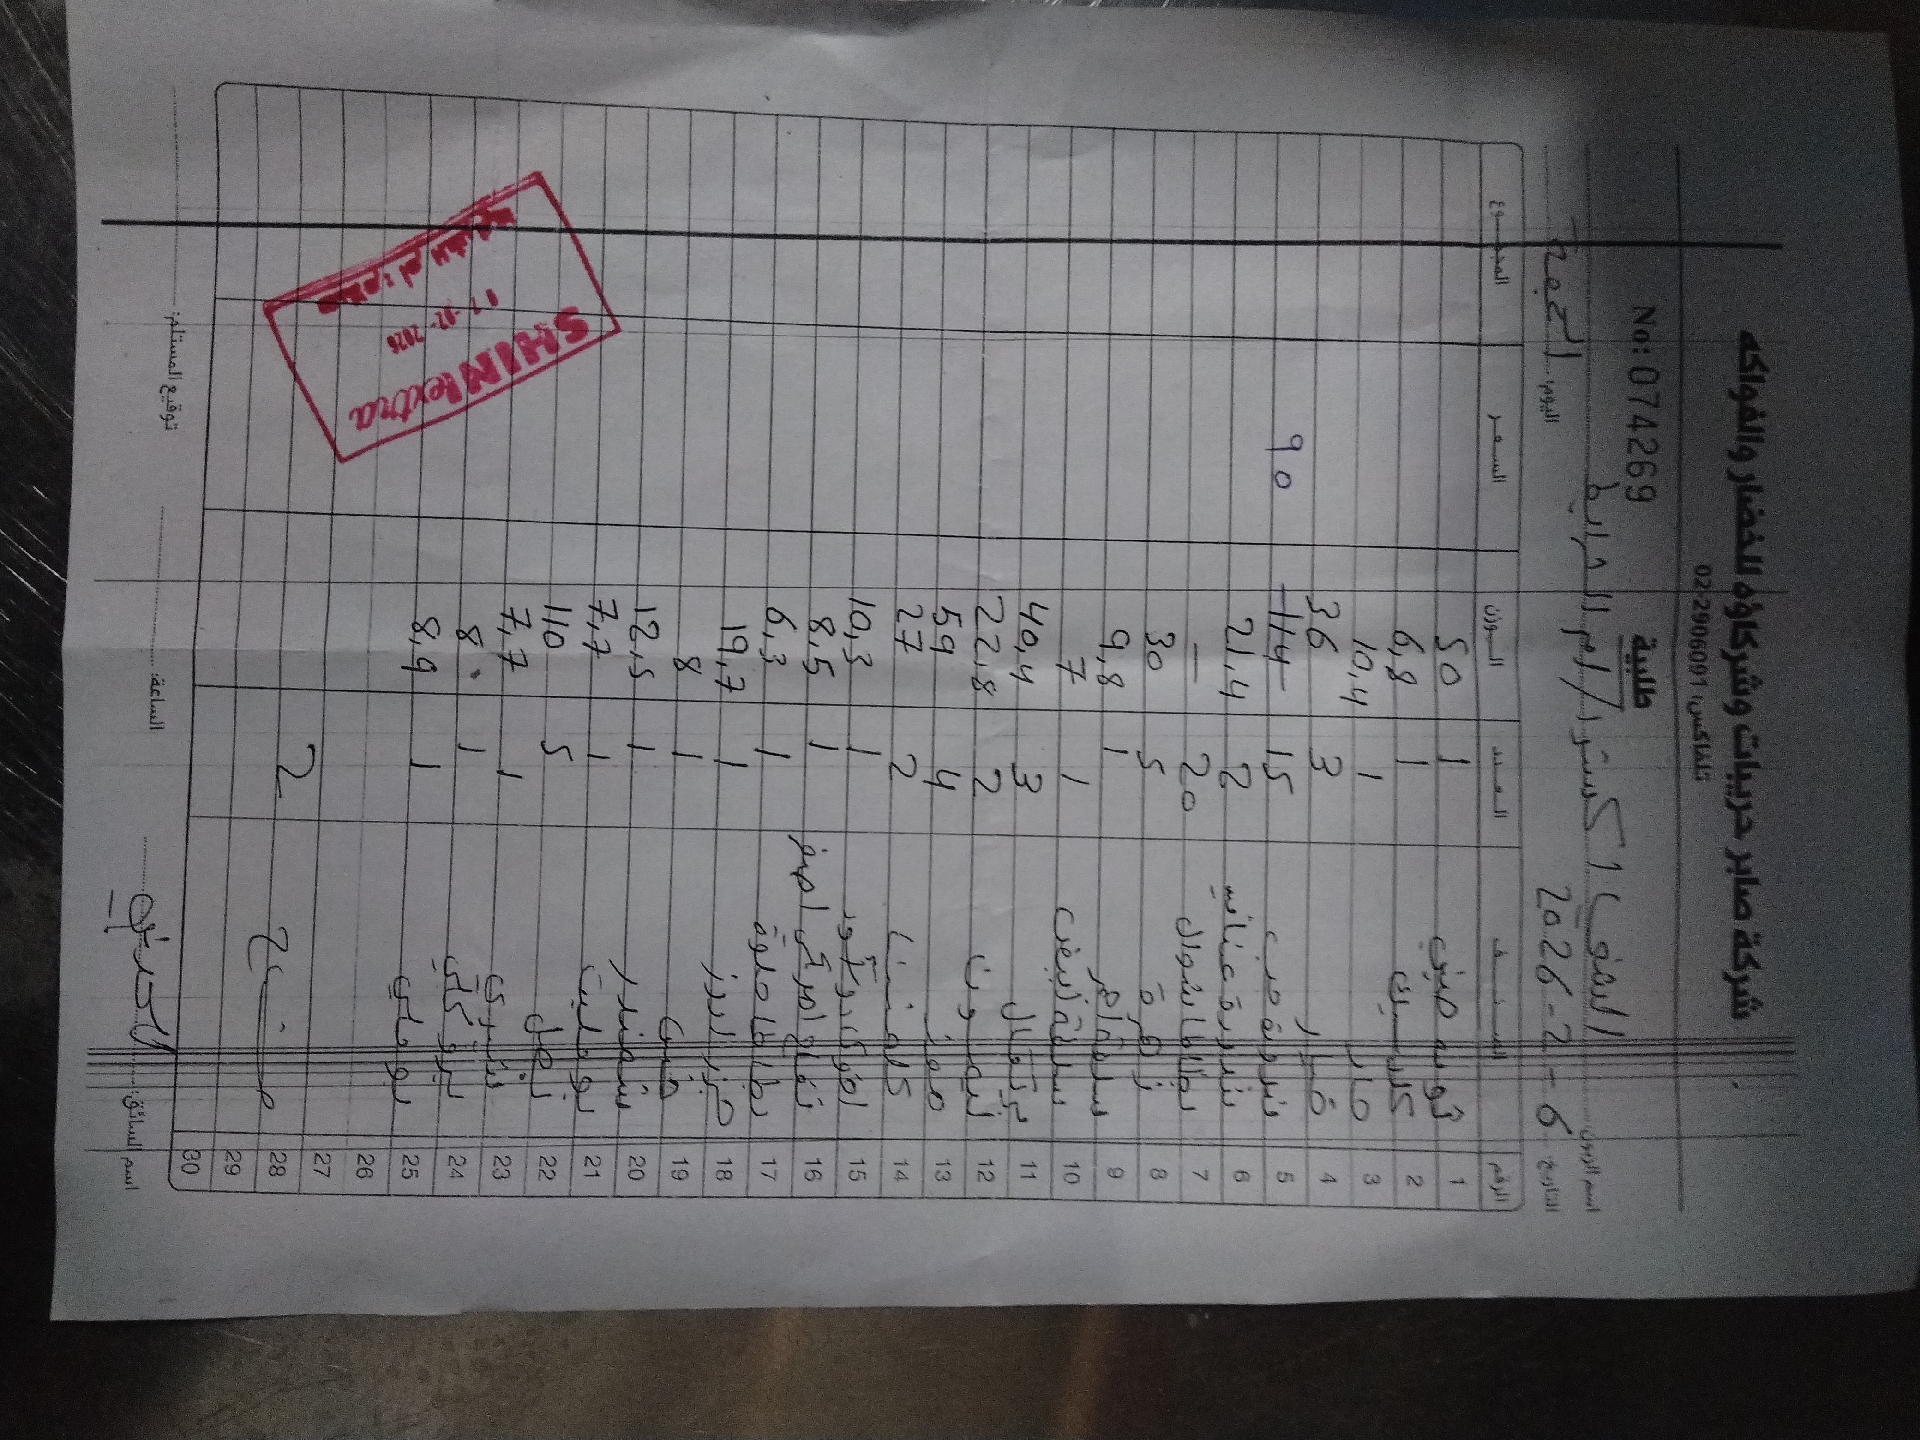 شركة صابر حريبات وشركاؤه للخضار والفواكه
تلفاكس: 02-2906091
طلبية
No: 074269
اسم الزبون: اكسترا / ام الشرايط
التاريخ: 6 - 2 - 2026 اليوم: الجمعة
الرقم الصنف العدد الوزن السعر المجموع
1 ثوم 1 50
2 1 6,8
3 1 10,4
4 خيار 3 36
5 بندورة 15 114 90
6 بندورة عناقيد 2 21,4
7 بطاطا شوال 20 —
8 زهرة 5 30
9 1 9,8
10 ابيض 1 7
11 برتقال 3 40,4
12 ليمون 2 22,8
13 موز 4 59
14 كلمنتينا 2 27
15 افوكادو 1 10,3
16 تفاح اصفر 1 8,5
17 بطاطا حلوة 1 6,3
18 جزر 1 19,7
19 خس 1 8
20 شمندر 1 12,5
21 1 7,7
22 بصل 5 110
23 1 7,7
24 بروكلي 1 8
25 بوملي 1 8,9
26
27
28 2
29
30
SHINI extra
2026
اسم السائق: الساعة: توقيع المستلم: